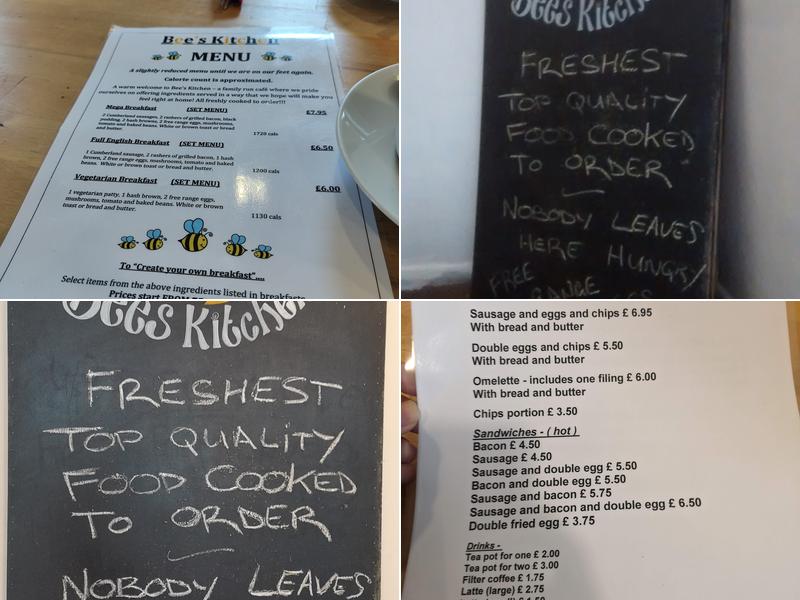 Bee's Kitchen
MENU
A slightly reduced menu until we are on our feet again.
Calorie count is approximated.
A warm welcome to Bee's Kitchen – a family run café where we pride
ourselves on offering ingredients served in a way that we hope will make you
feel right at home! All freshly cooked to order!!!
Mega Breakfast (SET MENU) £7.95
2 Cumberland sausages, 2 rashers of grilled bacon, black
pudding, 2 hash browns, 2 free range eggs, mushrooms,
tomato and baked beans. White or brown toast or bread
and butter.
1720 cals
Full English Breakfast (SET MENU) £6.50
1 Cumberland sausage, 2 rashers of grilled bacon, 1 hash
brown, 2 free range eggs, mushrooms, tomato and baked
beans. White or brown toast or bread and butter.
1200 cals
Vegetarian Breakfast (SET MENU) £6.00
1 vegetarian patty, 1 hash brown, 2 free range eggs,
mushrooms, tomato and baked beans. White or brown
toast or bread and butter.
1130 cals
To "Create your own breakfast"....
Select items from the above ingredients listed in breakfasts
Prices start FROM
Bees Kitchen
FRESHEST
TOP QUALITY
FOOD COOKED
TO ORDER
NOBODY LEAVES
HERE HUNGRY
FREE
RANGE
Bees Kitchen
FRESHEST
TOP QUALITY
FOOD COOKED
TO ORDER
NOBODY LEAVES
Sausage and eggs and chips £ 6.95
With bread and butter
Double eggs and chips £ 5.50
With bread and butter
Omelette - includes one filing £ 6.00
With bread and butter
Chips portion £ 3.50
Sandwiches - ( hot )
Bacon £ 4.50
Sausage £ 4.50
Sausage and double egg £ 5.50
Bacon and double egg £ 5.50
Sausage and bacon £ 5.75
Sausage and bacon and double egg £ 6.50
Double fried egg £ 3.75
Drinks -
Tea pot for one £ 2.00
Tea pot for two £ 3.00
Filter coffee £ 1.75
Latte (large) £ 2.75